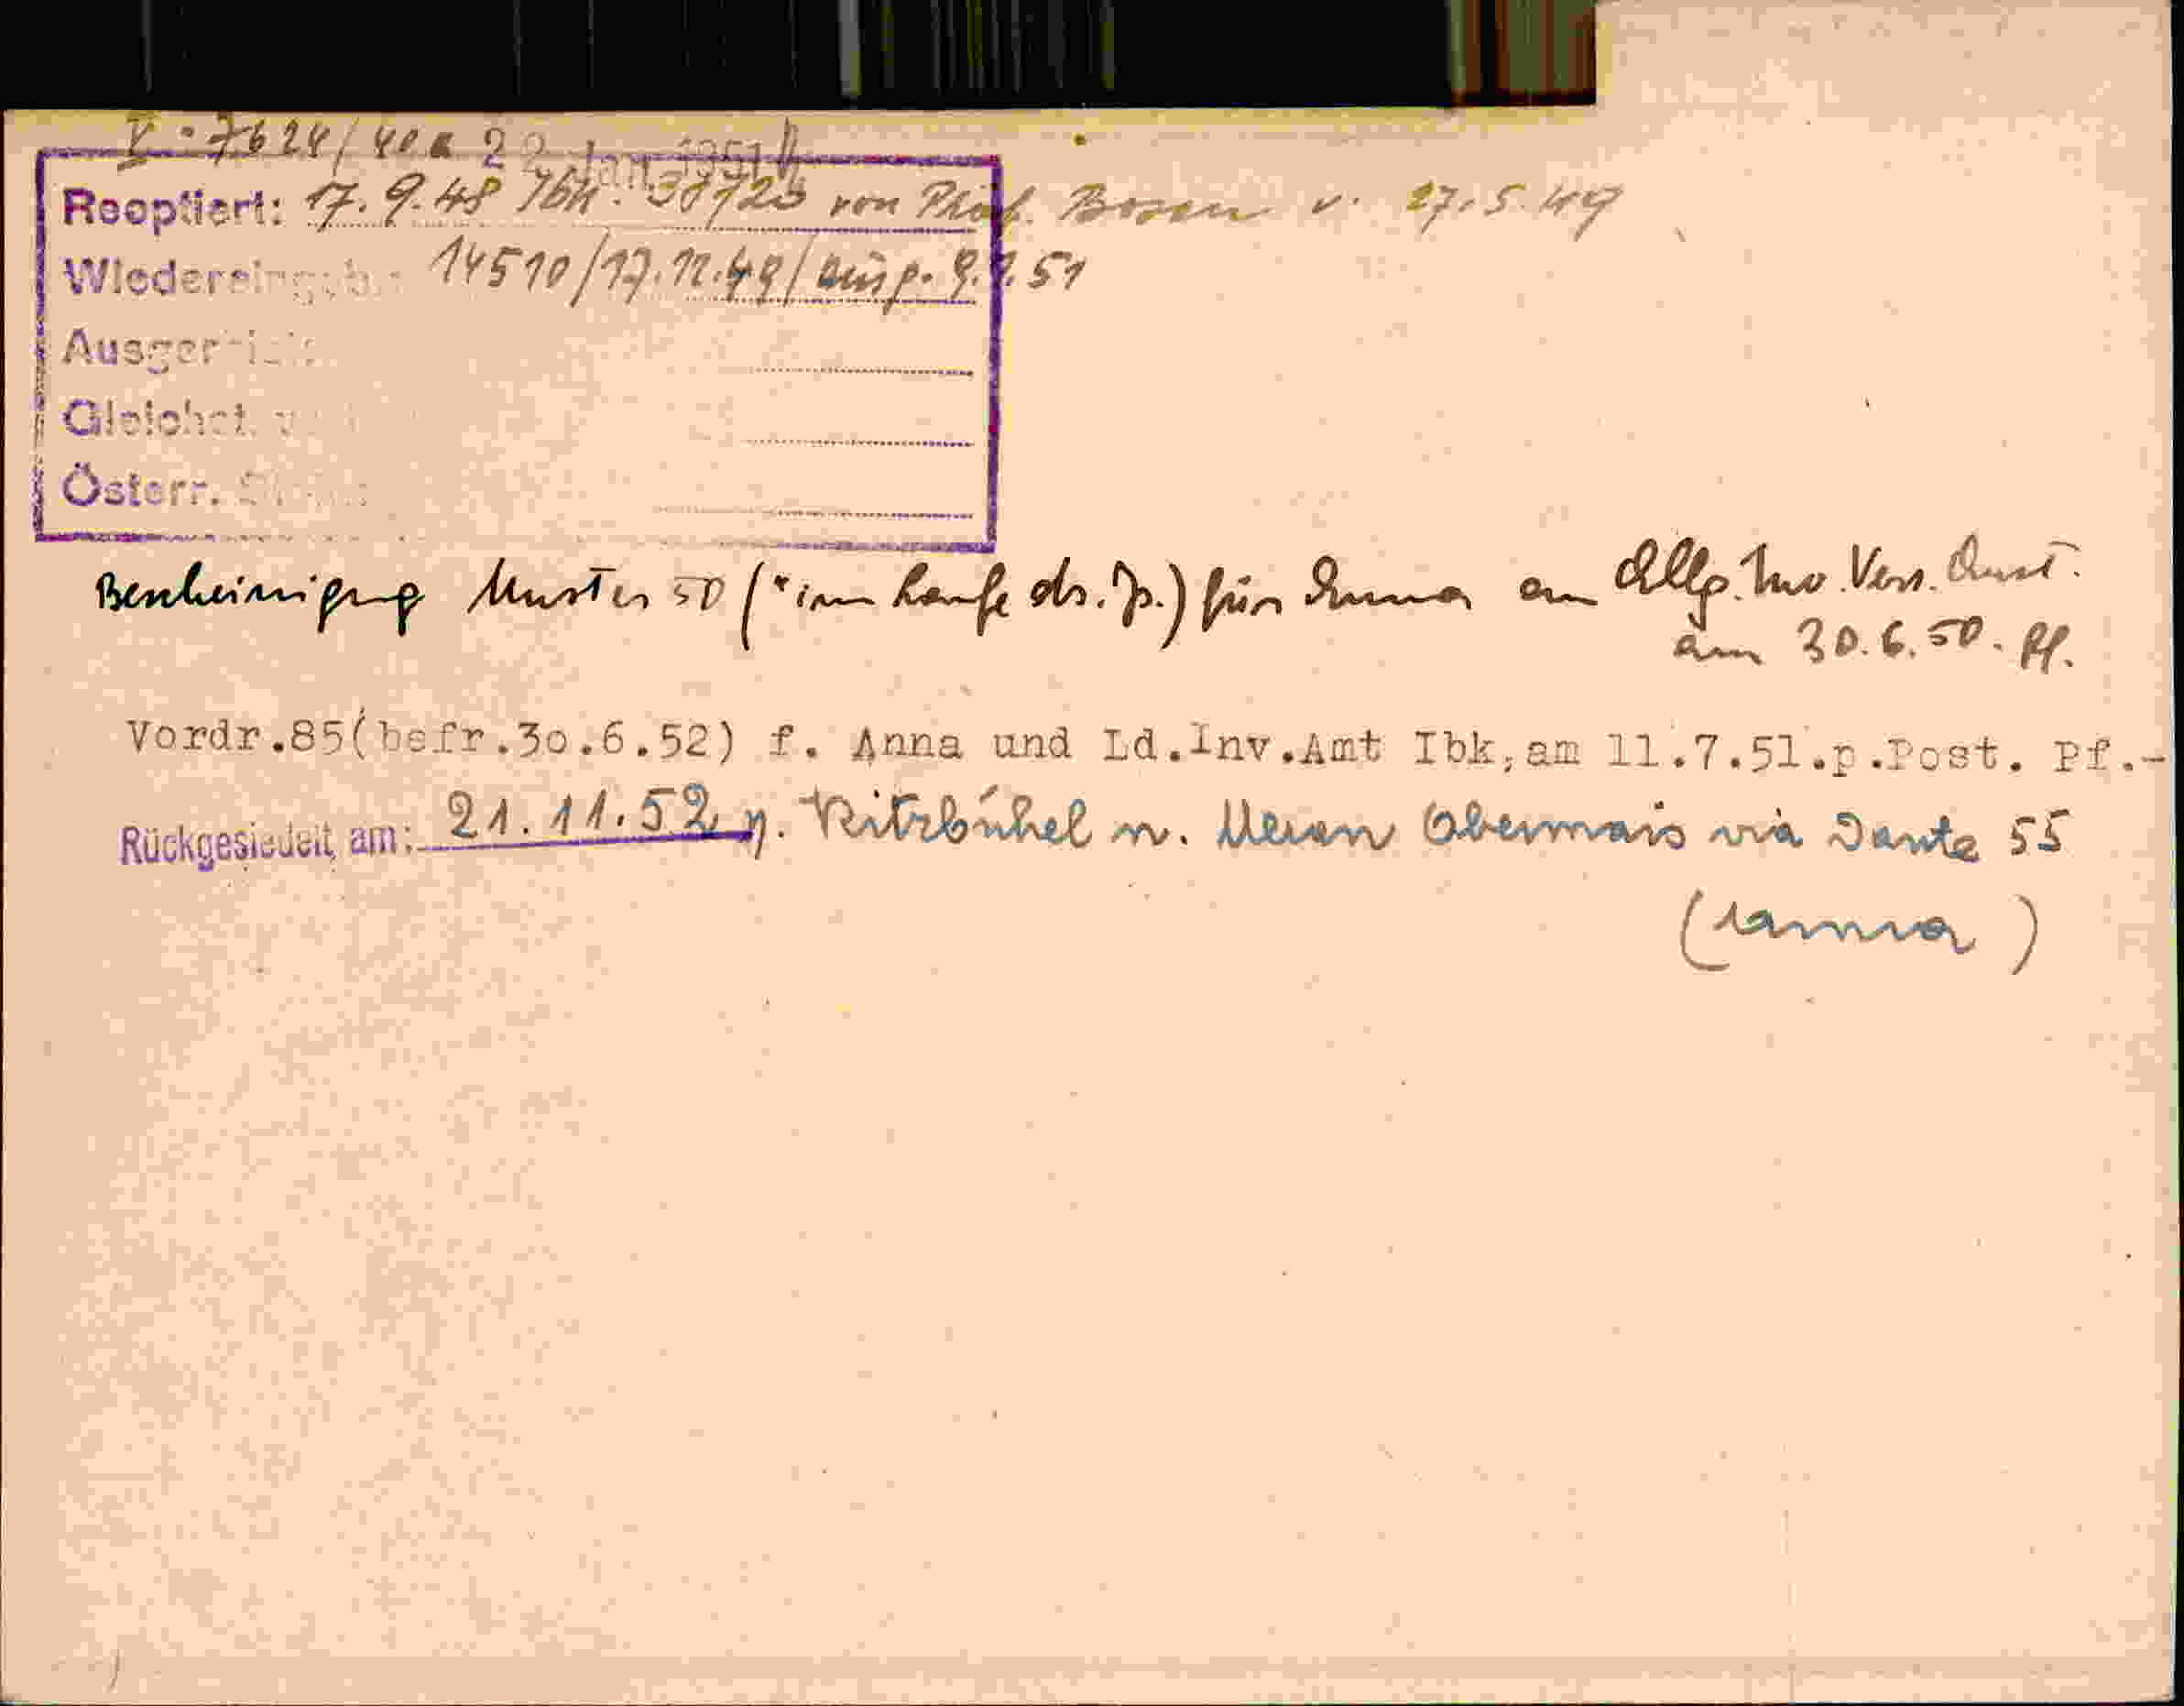 V. 7624/40a 22. Jan. 1951
Reoptiert: 17.9.48 Ibk. von Präf. Bozen v. 27.5.49
Wiedereingeb. 14510/17.12.49/ausg. 51
Ausger
Gleichst.
Österr.
Bescheinigung Muster 50 (*im Laufe ds. Js.) für Anna an Allg. Inv. Vers. Anst.
am 30.6.50. Pf.
Vordr.85(befr.30.6.52) f. Anna und Ld.Inv.Amt Ibk,am 11.7.51.p.Post. Pf.-
Rückgesiedelt am: 21.11.52 v. Kitzbühel n. Meran Obermais via Dante 55
(Anna)